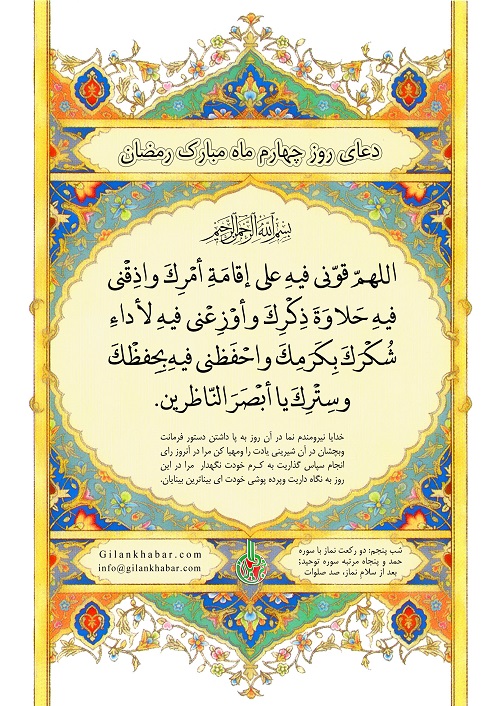 دعای روز چهارم ماه مبارک رمضان
بسم الله الرحمن الرحیم
اللهمّ قوّنی فیهِ علی إقامَةِ أمْرِكَ واذِقْنی
فیهِ حَلاوَةَ ذِكْرِكَ وأوْزِعْنی فیهِ لأداءِ
شُكْرَكَ بِكَرَمِكَ واحْفَظنی فیهِ بِحِفظْكَ
وسِتْرِكَ یا أبْصَرَ النّاظرین.
خدایا نیرومندم نما در آن روز به پا داشتن دستور فرمانت
وبچشان در آن شیرینی یادت را ومهیا کن مرا در آنروز رای
انجام سپاس گذاریت به کـرم خودت نگهدار مرا در این
روز به نگاه داریت وپرده پوشی خودت ای بیناترین بینایان.
شب پنجم: دو رکعت نماز با سوره
حمد و پنجاه مرتبه سوره توحید؛
بعد از سلام نماز، صد صلوات
Gilankhabar.com
info@gilankhabar.com